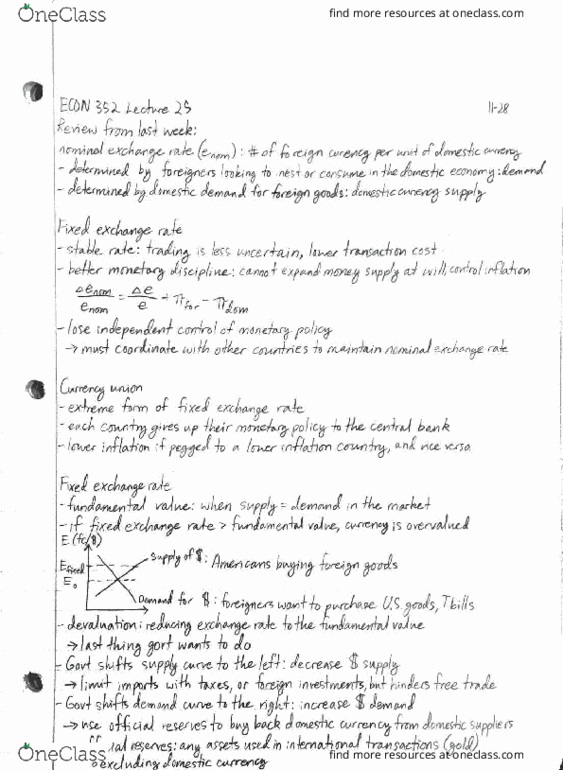 OneClass
find more resources at oneclass.com
ECON 352 Lecture 25
11-28
Review from last week:
nominal exchange rate (enom): # of foreign curency per unit of domestic currency
- determined by foreigners looking to nest or consume in the domestic economy: demand
- determined by domestic demand for foreign goods: domestic currency supply
Fixed exchange rate
- stable rate: trading is less uncertain, lower transaction cost
- better monetary discipline: cannot expand money supply at will, control inflation
Δenom/enom = Δe/e + πfor - πdom
- lose independent control of monetary policy
→ must coordinate with other countries to maintain nominal exchange rate
Currency union
- extreme form of fixed exchange rate
- each country gives up their monetary policy to the central bank
- lower inflation if pegged to a lower inflation country, and vice versa
Fixed exchange rate
- fundamental value: when supply = demand in the market
- if fixed exchange rate > fundamental value, currency is overvalued
E (fc/$)
Efixed
E0
Supply of $: Americans buying foreign goods
Demand for $: foreigners want to purchase U.S. goods, Tbills
- devaluation: reducing exchange rate to the fundamental value
→ last thing govt wants to do
- Govt shifts supply curve to the left: decrease $ supply
→ limit imports with taxes, or foreign investments, but hinders free trade
- Govt shifts demand curve to the right: increase $ demand
→ use official reserves to buy back domestic currency from domestic suppliers
ial reserves: any assets used in international transactions (gold)
excluding domestic currency
OneClass
find more resources at oneclass.com